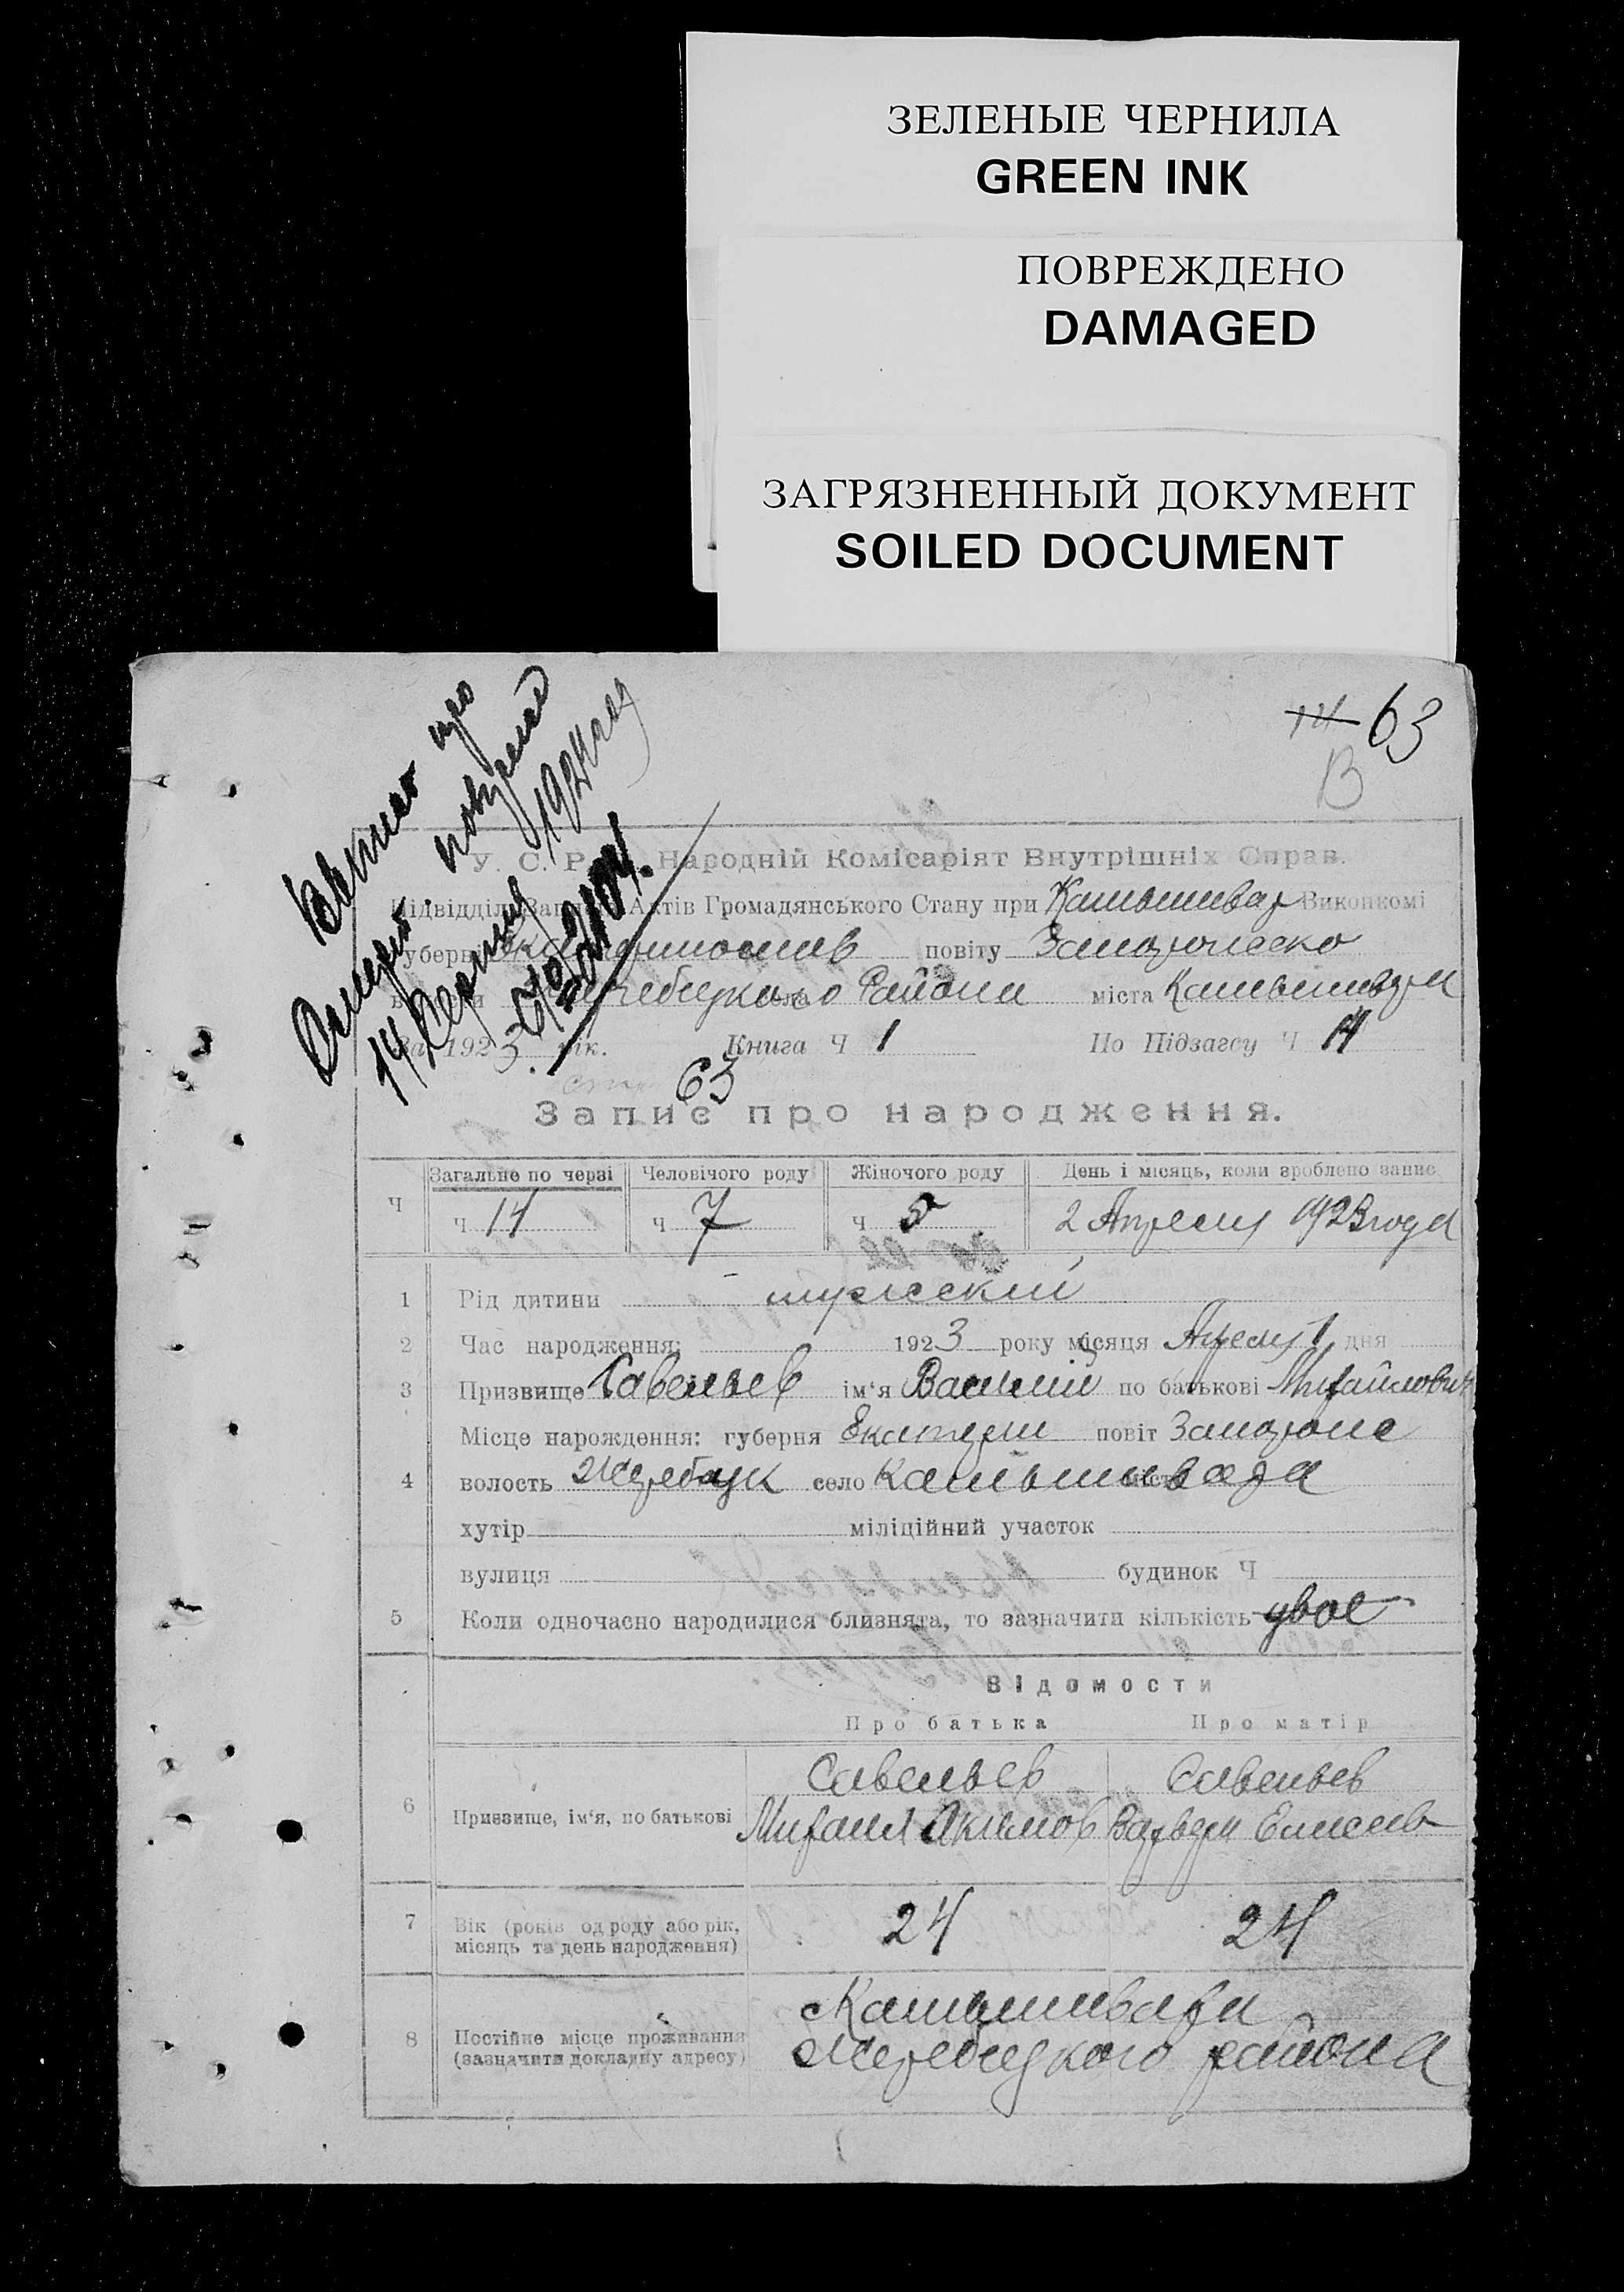 ЗЕЛЕНЫЕ ЧЕРНИЛА
GREEN INK
ПОВРЕЖДЕНО
DAMAGED
ЗАГРЯЗНЕННЫЙ ДОКУМЕНТ
SOILED DOCUMENT
14 63
В
У. С. Р. Народній Комісаріят Внутрішніх Справ.
Підвідділ Запису Актів Громадянського Стану при Камышевар Виконкомі
губерн повіту Запорожско
Района міста Камышевахи
За 1923 рік. Книга Ч 1 По Підзагсу Ч 14
63
Запис про народження.
Ч Загальне по черзі Человічого роду Жіночого роду День і місяць, коли зроблено запис
ч 14 ч 7 ч 2 Апреля 1923 года
1 Рід дитини мужеский
2 Час народження: 1923 року місяця Апреля 1 дня
3 Призвище Савельев ім'я Василий по батькові Михайлович
Місце нарождення: губерня Екатери повіт Запорож
4 волость Жеребецк село Камышеваха місто
хутір міліційний участок
вулиця будинок Ч
5 Коли одночасно народилися близнята, то зазначити кількість двое
Відомости
Про батька Про матір
Савельев Савельев
6 Призвище, ім'я, по батькові Михаил Акимов Варвара Елисеев
7 Вік (років од роду або рік, 24 24
місяць та день народження)
Камышеваха
8 Постійне місце проживання Жеребецкого района
(зазначити докладну адресу)